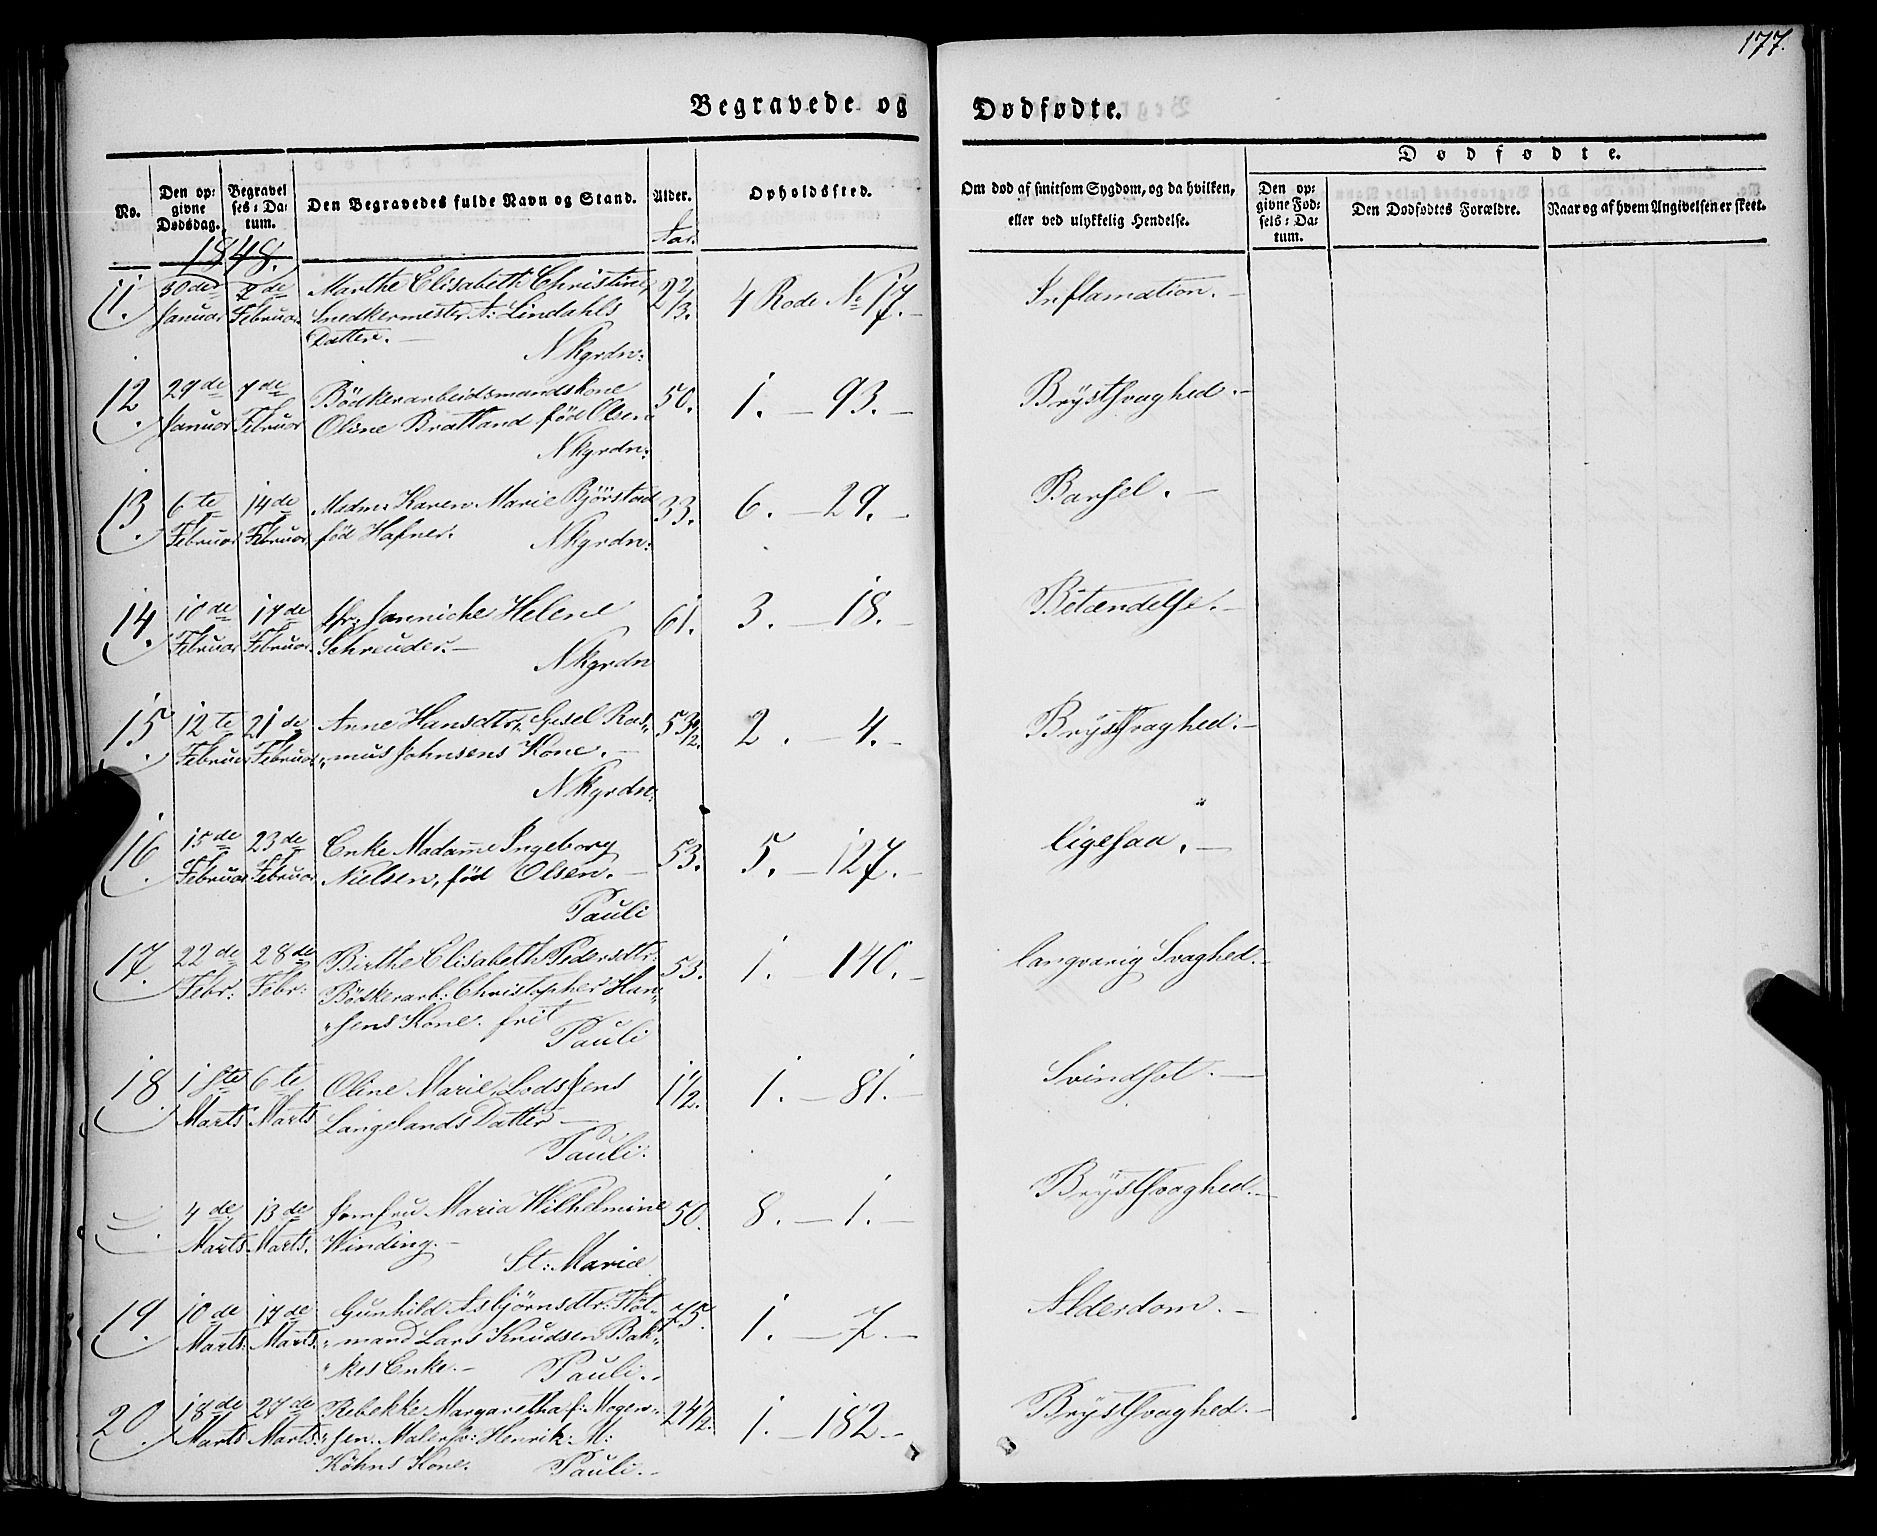 177.
Begravede og Dødfødte.
No.
Den opgivne Dødsdag.
Begravelses-Datum.
Den Begravedes fulde Navn og Stand.
Alder.
Aar.
Opholdssted.
Om død af smitsom Sygdom, og da hvilken, eller ved ulykkelig Hendelse.
Dødfødte.
Den opgivne Fødsels-Datum.
Den Dødfødtes Forældre.
Naar og af hvem Angivelsen er skeet.
1848.
11. 30de Januar Februar Marthe Elisabeth Christine, 2 2/3. 4 Rode No 17. Inflamation.
Snedkermester A: Lindahls
Datter.
N kgrdn:
12. 29de Januar 7de Februar Bödkerarbeidsmandskone 50. 1. 93. Brÿstsvaghed.
Oline Bratland född Olsen
N kgrdn:
13. 6te Februar 14de Februar Madm: Karen Marie Bjørstad 33. 6. 29. Barsel.
föd Hafner.
N kgrdn:
14. 10de Februar 17de Februar Janniche Helene 61. 3. 18. Betændelse.
Schreuder.
N kgrdn
15. 12te Februar 21de Februar Anne Hansdtr, Gesel Ras-
mus Johnsens Kone. 2. 4. Brÿstsvaghed.
N kgrdn:
16. 15de Februar 23de Februar Enke Madame Ingeborg 53. 5. 127. ligesaa.
Nielsen, föd Olsen.
Pauli
17. 22de Febr: 28de Febr: Birthe Elisabeth Pedersdtr. 53. 1. 140. langvarig Svaghed.
Bödkerarb: Christopher Han-
sens Kone. frit
Pauli
18. 1ste Marts 6te Marts Oline Marie, Lods Jens 1 1/2. 1. 81. Svindsot.
Langelands Datter
Pauli.
4de Marts 13de Marts. Jomfru Maria Wilhelmine 50. 8. 1. Brÿstsvaghed.
Winding.
St: Marie
19. 10de Marts. 17de Marts. Gunhild Asbjörnsdtr: Flöt-
mand Lars Knudsen Bak-
kes Enke. 75. 1. 7. Alderdom.
Pauli.
20. 18de Marts 27de Marts. Rebekke Margaretha f: Mogen-
sen. Henrik: M: 1. 182. Brÿstsvaghed.
Köhns Kone.
Pauli.